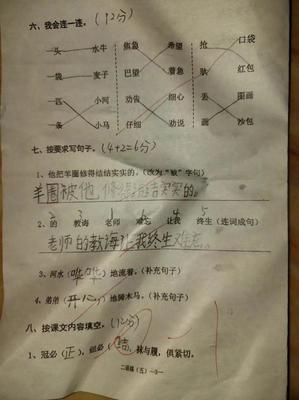 六、我会连一连。(12分)
一头 水牛 焦急 希望 抢 口袋
一袋 麦子 巴望 着急 放 红包
一匹 小河 劝告 细心 丢 画画
一条 小马 仔细 劝说 画 沙包
七、按要求写句子。(4+2=6分)
1、他把羊圈修得结结实实的。(改为“被”字句)
羊圈被他修得结结实实的。
2、的 教诲 老师 难忘 让我 终生 (连词成句)
老师的教诲让我终生难忘。
3、河水(哗哗)地流着。(补充句子)
4、弟弟(开心)地骑木马。(补充句子)
八、按课文内容填空。(12分)
1、冠必(正),纽必(结),袜与履,俱紧切。
二语练(五)—3—